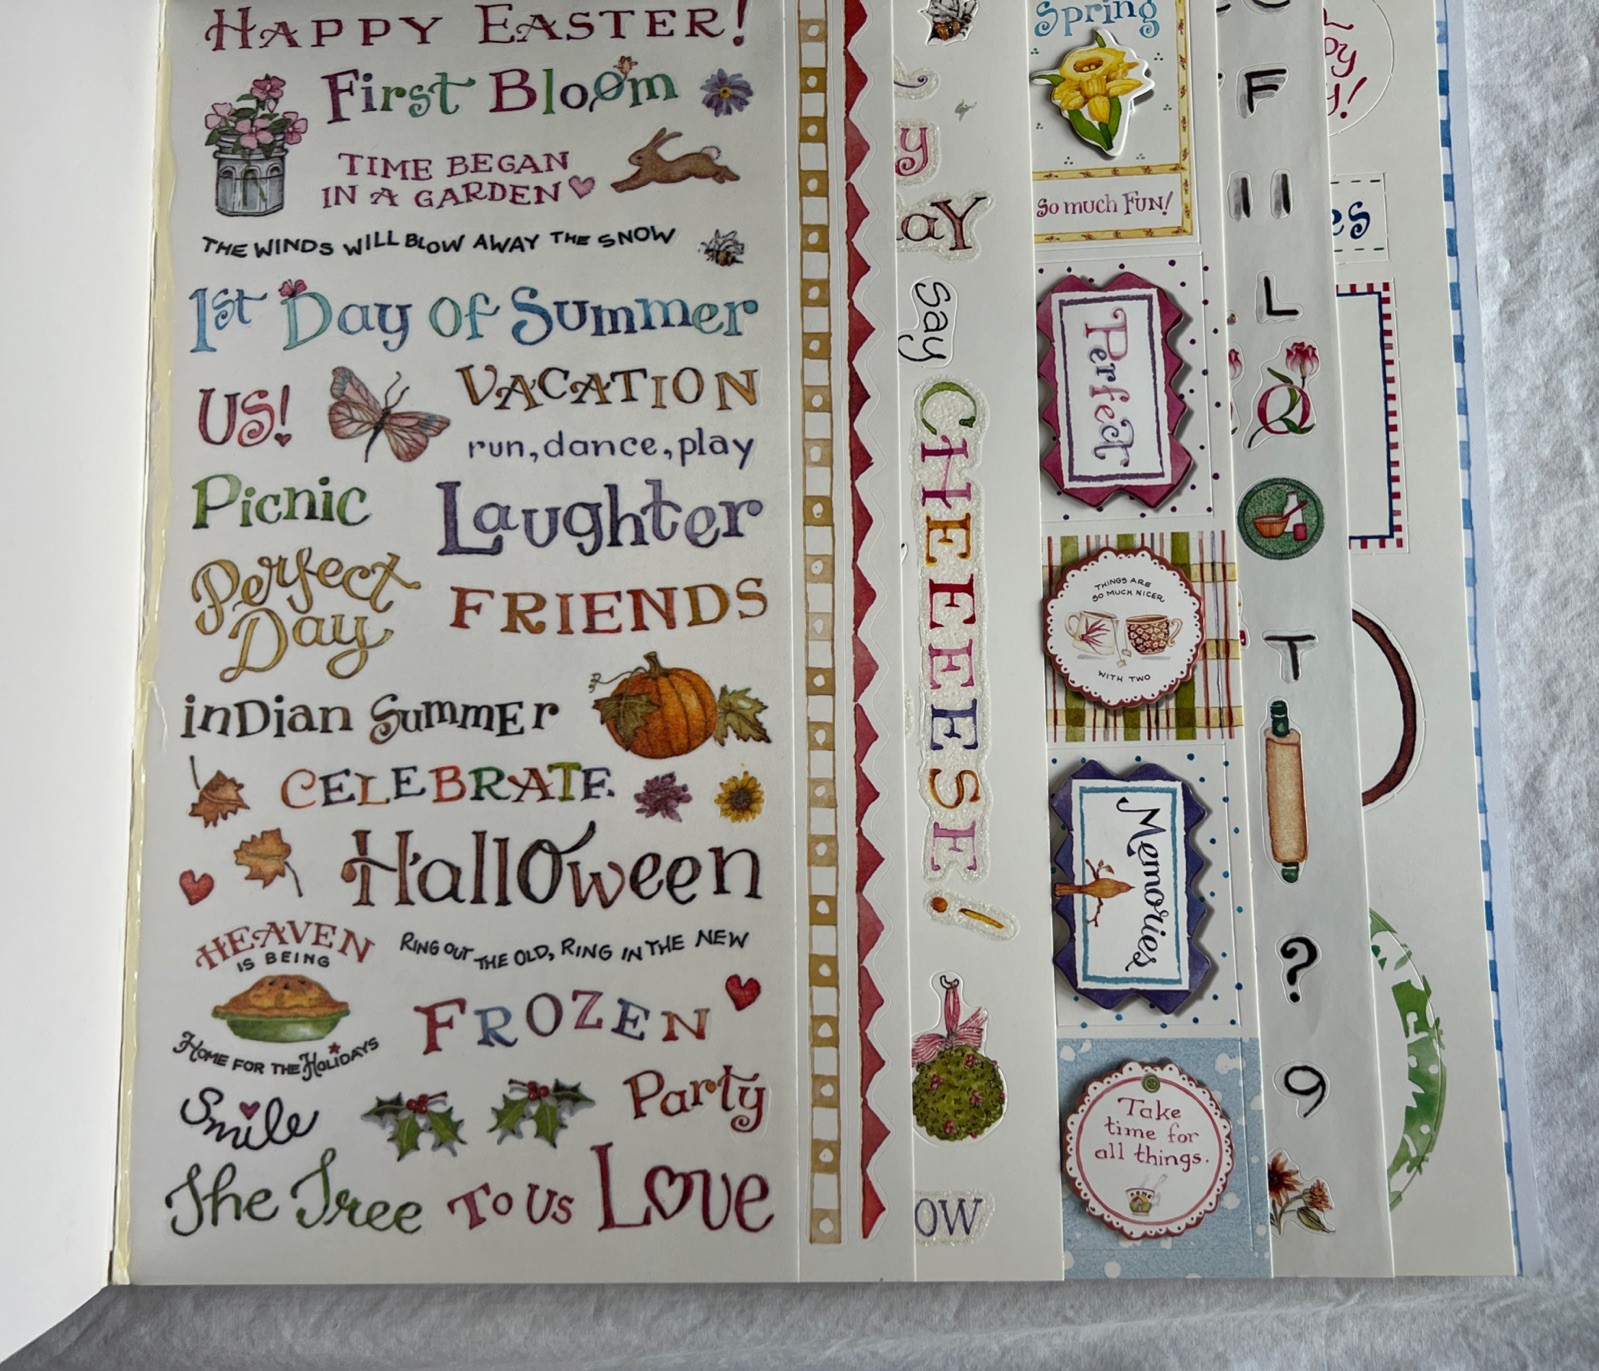 HAPPY EASTER!
First Bloom
TIME BEGAN
IN A GARDEN
THE WINDS WILL BLOW AWAY THE SNOW
1st Day of Summer
US!
VACATION
run, dance, play
Picnic
Laughter
Perfect
Day
FRIENDS
inDian SummEr
CELEBRATE
Halloween
HEAVEN
IS BEING
HOME FOR THE HOLIDAYS
RING OUT THE OLD, RING IN THE NEW
FROZEN
Smile
Party
The Tree
To Us
Love
y
aY
Say
CHEEEESE!
OW
Spring
So much FUN!
Perfect
THINGS ARE
SO MUCH NICER
WITH TWO
Memories
Take
time for
all things.
F
"
L
Q
T
?
9
py
y!
es